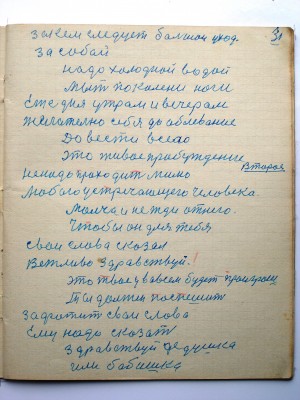 31
за кем следует болшой уход.
за собай
надо холодной водой
мыт по колени ноги
Еже дня утрам и вечерам
Желателно себя до обливание
Довести всего
Это живое пробуждение
Вторая
ненадо проходит мимо
Любого устречающего человека
Молча и не жди от него.
Чтобы он для тебя
сваи слова сказал
Вежливо здравствуй!
это твое у вовсем будет проигрош
Ты должен поспешит
Заплотит сваи слова
Ему надо сказат
Здравствуй дедушка
или бабушка